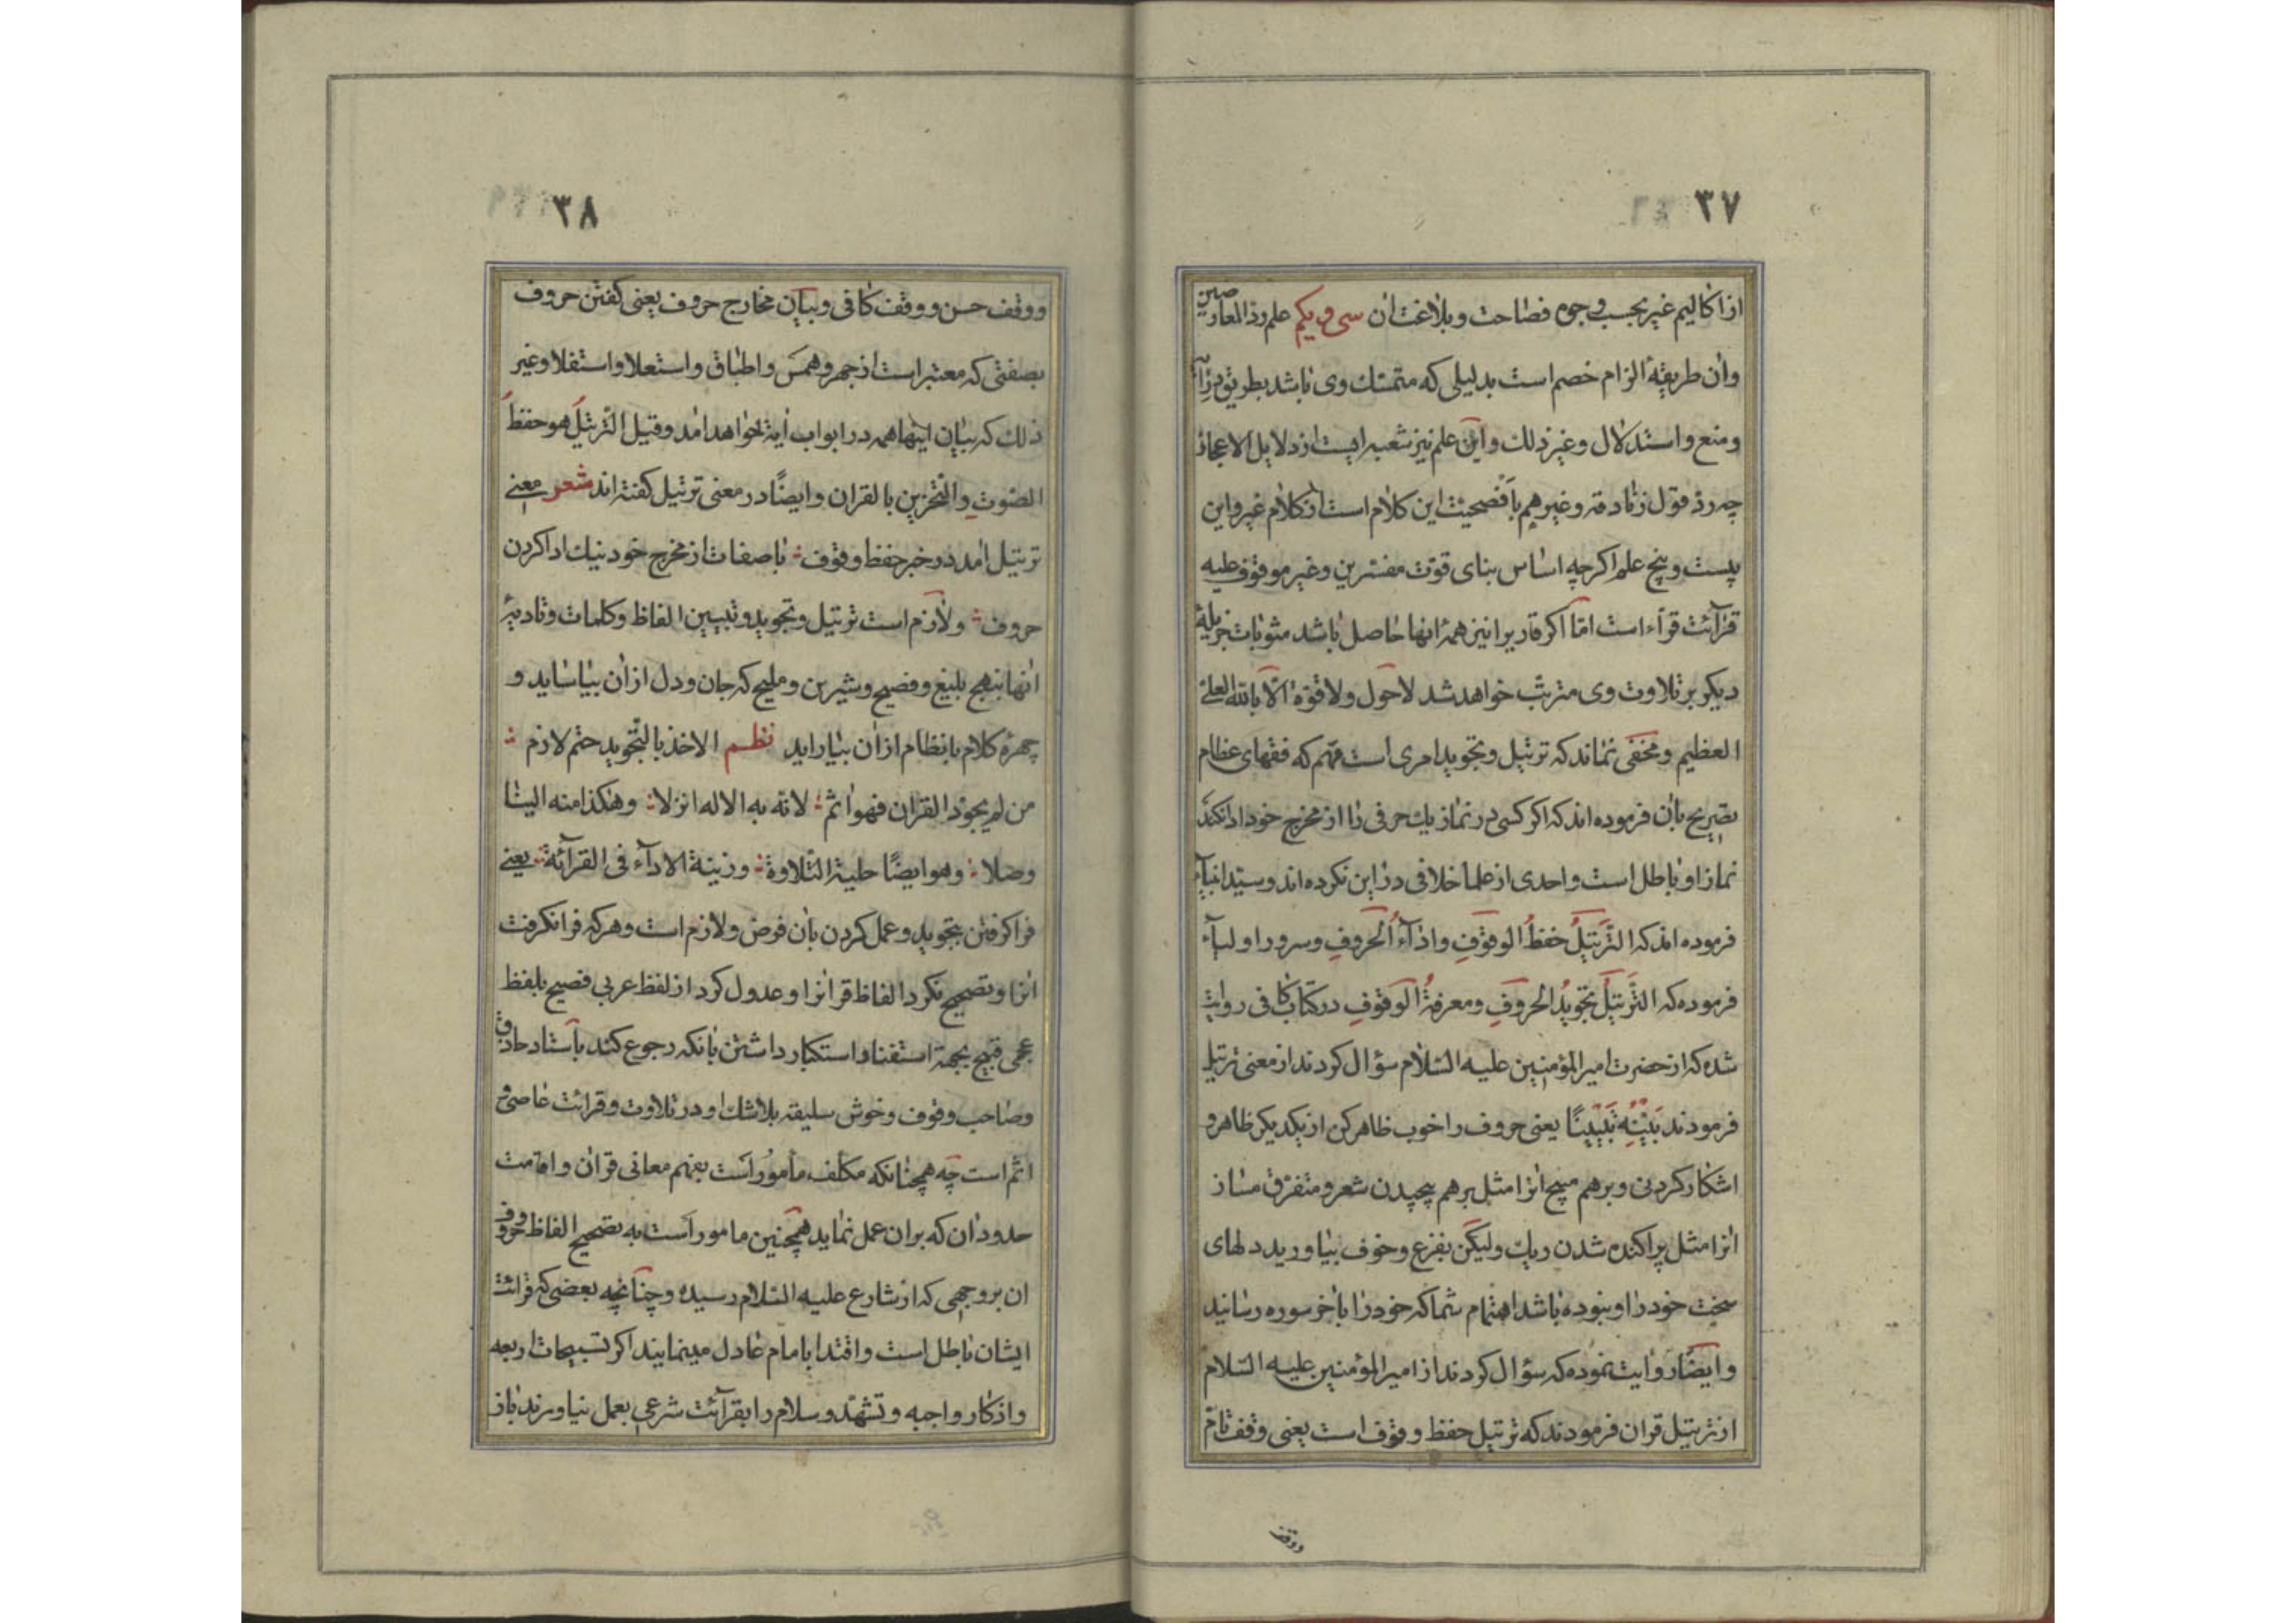 ۳۷
از اکالیم غیر بحسب وجوه فصاحت و بلاغت آن سی و یکم علم رد المعارضین
و آن طریقهٔ الزام خصم است بدلیلی که متمسک وی باشد بطریق
و منع و استدلال و غیر ذلک و این علم نیز شعبه ایست از دلایل الاعجاز
چه رد قول زنادقه و غیرهم بافصحیت این کلام است از کلام غیر و این
بیست و پنج علم اگرچه اساس بنای قوت مفسرین و غیر موقوف علیه
قرآئت قرآء است امّا اگر قاریرا نیز همهٔ انها حاصل باشد مثوبات جزیلهٔ
دیگر بر تلاوت وی مترتب خواهد شد لا حول ولا قوّة الّا بالله العلیّ
العظیم و مخفی نماند که ترتیل و تجوید امری است مهّم که فقهای عظام
بتصریح بآن فرموده اند که اگر کسی در نماز یک حرفی را از مخرج خود ادا نکند
نماز او باطل است و احدی از علما خلافی در این نکرده اند و سیّد انبیآء
فرموده اند که التَّرتیلُ حفظُ الوقوفِ و ادآءُ الحروفِ و سرور اولیآء
فرموده که التَّرتیلُ تجویدُ الحروفِ و معرفةُ الوقوفِ در کتاب کافی روایت
شده که از حضرت امیر المؤمنین علیه السّلام سؤال کردند از معنی ترتیل
فرمودند بَیِّنْهُ تَبْیینًا یعنی حروف را خوب ظاهر کن از یکدیگر ظاهر و
اشکار کردنی و برهم مپیچ انرا مثل برهم پیچیدن شعر و متفرق مساز
انرا مثل پراکنده شدن ریک ولیکن بفزع و خوف بیاورید دلهای
سخت خود را و نبوده باشد اهتمام شما که خود را باخر سوره رسانید
و ایضًا روایت نموده که سؤال کردند از امیر المؤمنین علیه السّلام
از ترتیل قران فرمودند که ترتیل حفظ وقوف است یعنی وقف تامّ
ووقف
۳۸
و وقف حسن و وقف کافی و بیان مخارج حروف یعنی گفتن حروف
بصفتی که معتبر است از جهر و همس و اطباق و استعلا و استفلا و غیر
ذلک که بیان اینها همه در ابواب آیة خواهد امد و قیل التّرتیل هو حفظ
الصّوتِ و التّحزین بالقران و ایضًا در معنی ترتیل گفته اند شعر معنی
ترتیل امد در خبر حفظ وقوف ؞ با صفات از مخرج خود نیک ادا کردن
حروف ؞ و لازم است ترتیل و تجوید و تبیین الفاظ و کلمات و تادیهٔ
انها بنهج بلیغ و فصیح و شیرین و ملیح که جان و دل از ان بیاساید و
چهرهٔ کلام با نظام از ان بیاراید نظم الاخذ بالتّجوید حتم لازم ؞
من لم یجوّد القران فهو اثم ؞ لانّه به الاله انزلا ؞ و هکذا منه الینا
وصلا ؞ و هو ایضًا حلیة التّلاوة ؞ و زینة الادآء فی القرآئة ؞ یعنی
فرا گرفتن تجوید و عمل کردن بآن فرض و لازم است و هر که فرا نگرفت
انرا و تصحیح نکرد الفاظ قرانرا و عدول کرد از لفظ عربی فصیح بلفظ
عجمی قبیح بجهة استغنا و استکبار داشتن بانکه رجوع کند باستاد حاذق
و صاحب وقوف و خوش سلیقه بلا شک او در تلاوت و قرائت عاصی و
اثم است چه همچنانکه مکلّف مأمور است بفهم معانی قران و اقامت
حدود ان که بران عمل نماید همچنین مامور است به تصحیح الفاظ و حروف
ان بر وجهی که از شارع علیه السّلام رسیده و چنانچه بعضی که قرائت
ایشان باطل است و اقتدا بامام عادل مینمایند اگر تسبیحات اربعه
و اذکار واجبه و تشهّد و سلام را بقرآئت شرعی بعمل نیاورند باز